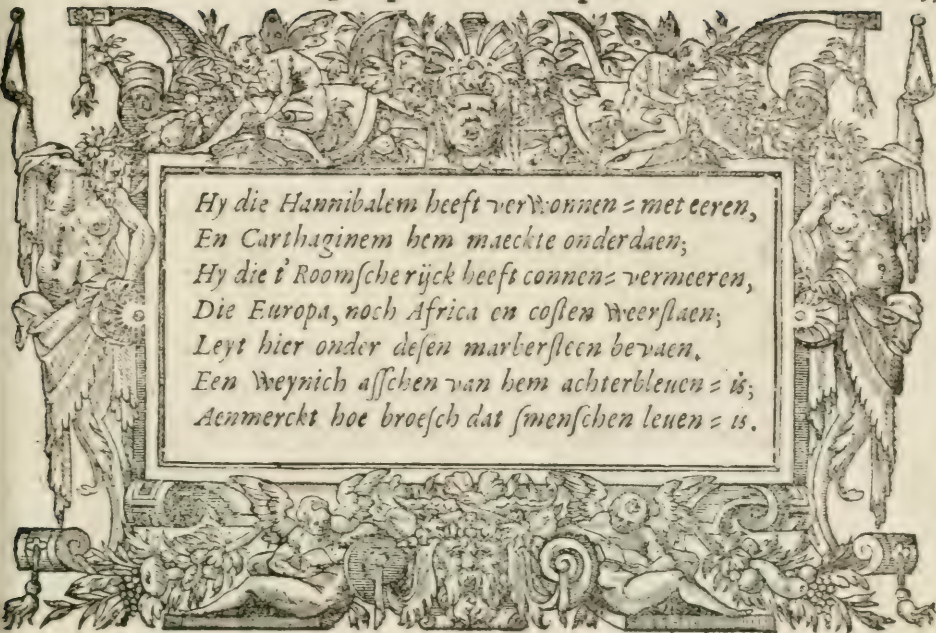 Hy die Hannibalem heeft verwonnen = met eeren,
En Carthaginem hem maeckte onderdaen;
Hy die t' Roomſche rijck heeft connen = vermeeren,
Die Europa, noch Africa en coſten weerſtaen;
Leyt hier onder deſen marberſteen bevaen.
Een weynich aſſchen van hem achterbleuen = is;
Aenmerckt hoe broeſch dat ſmenſchen leuen = is.